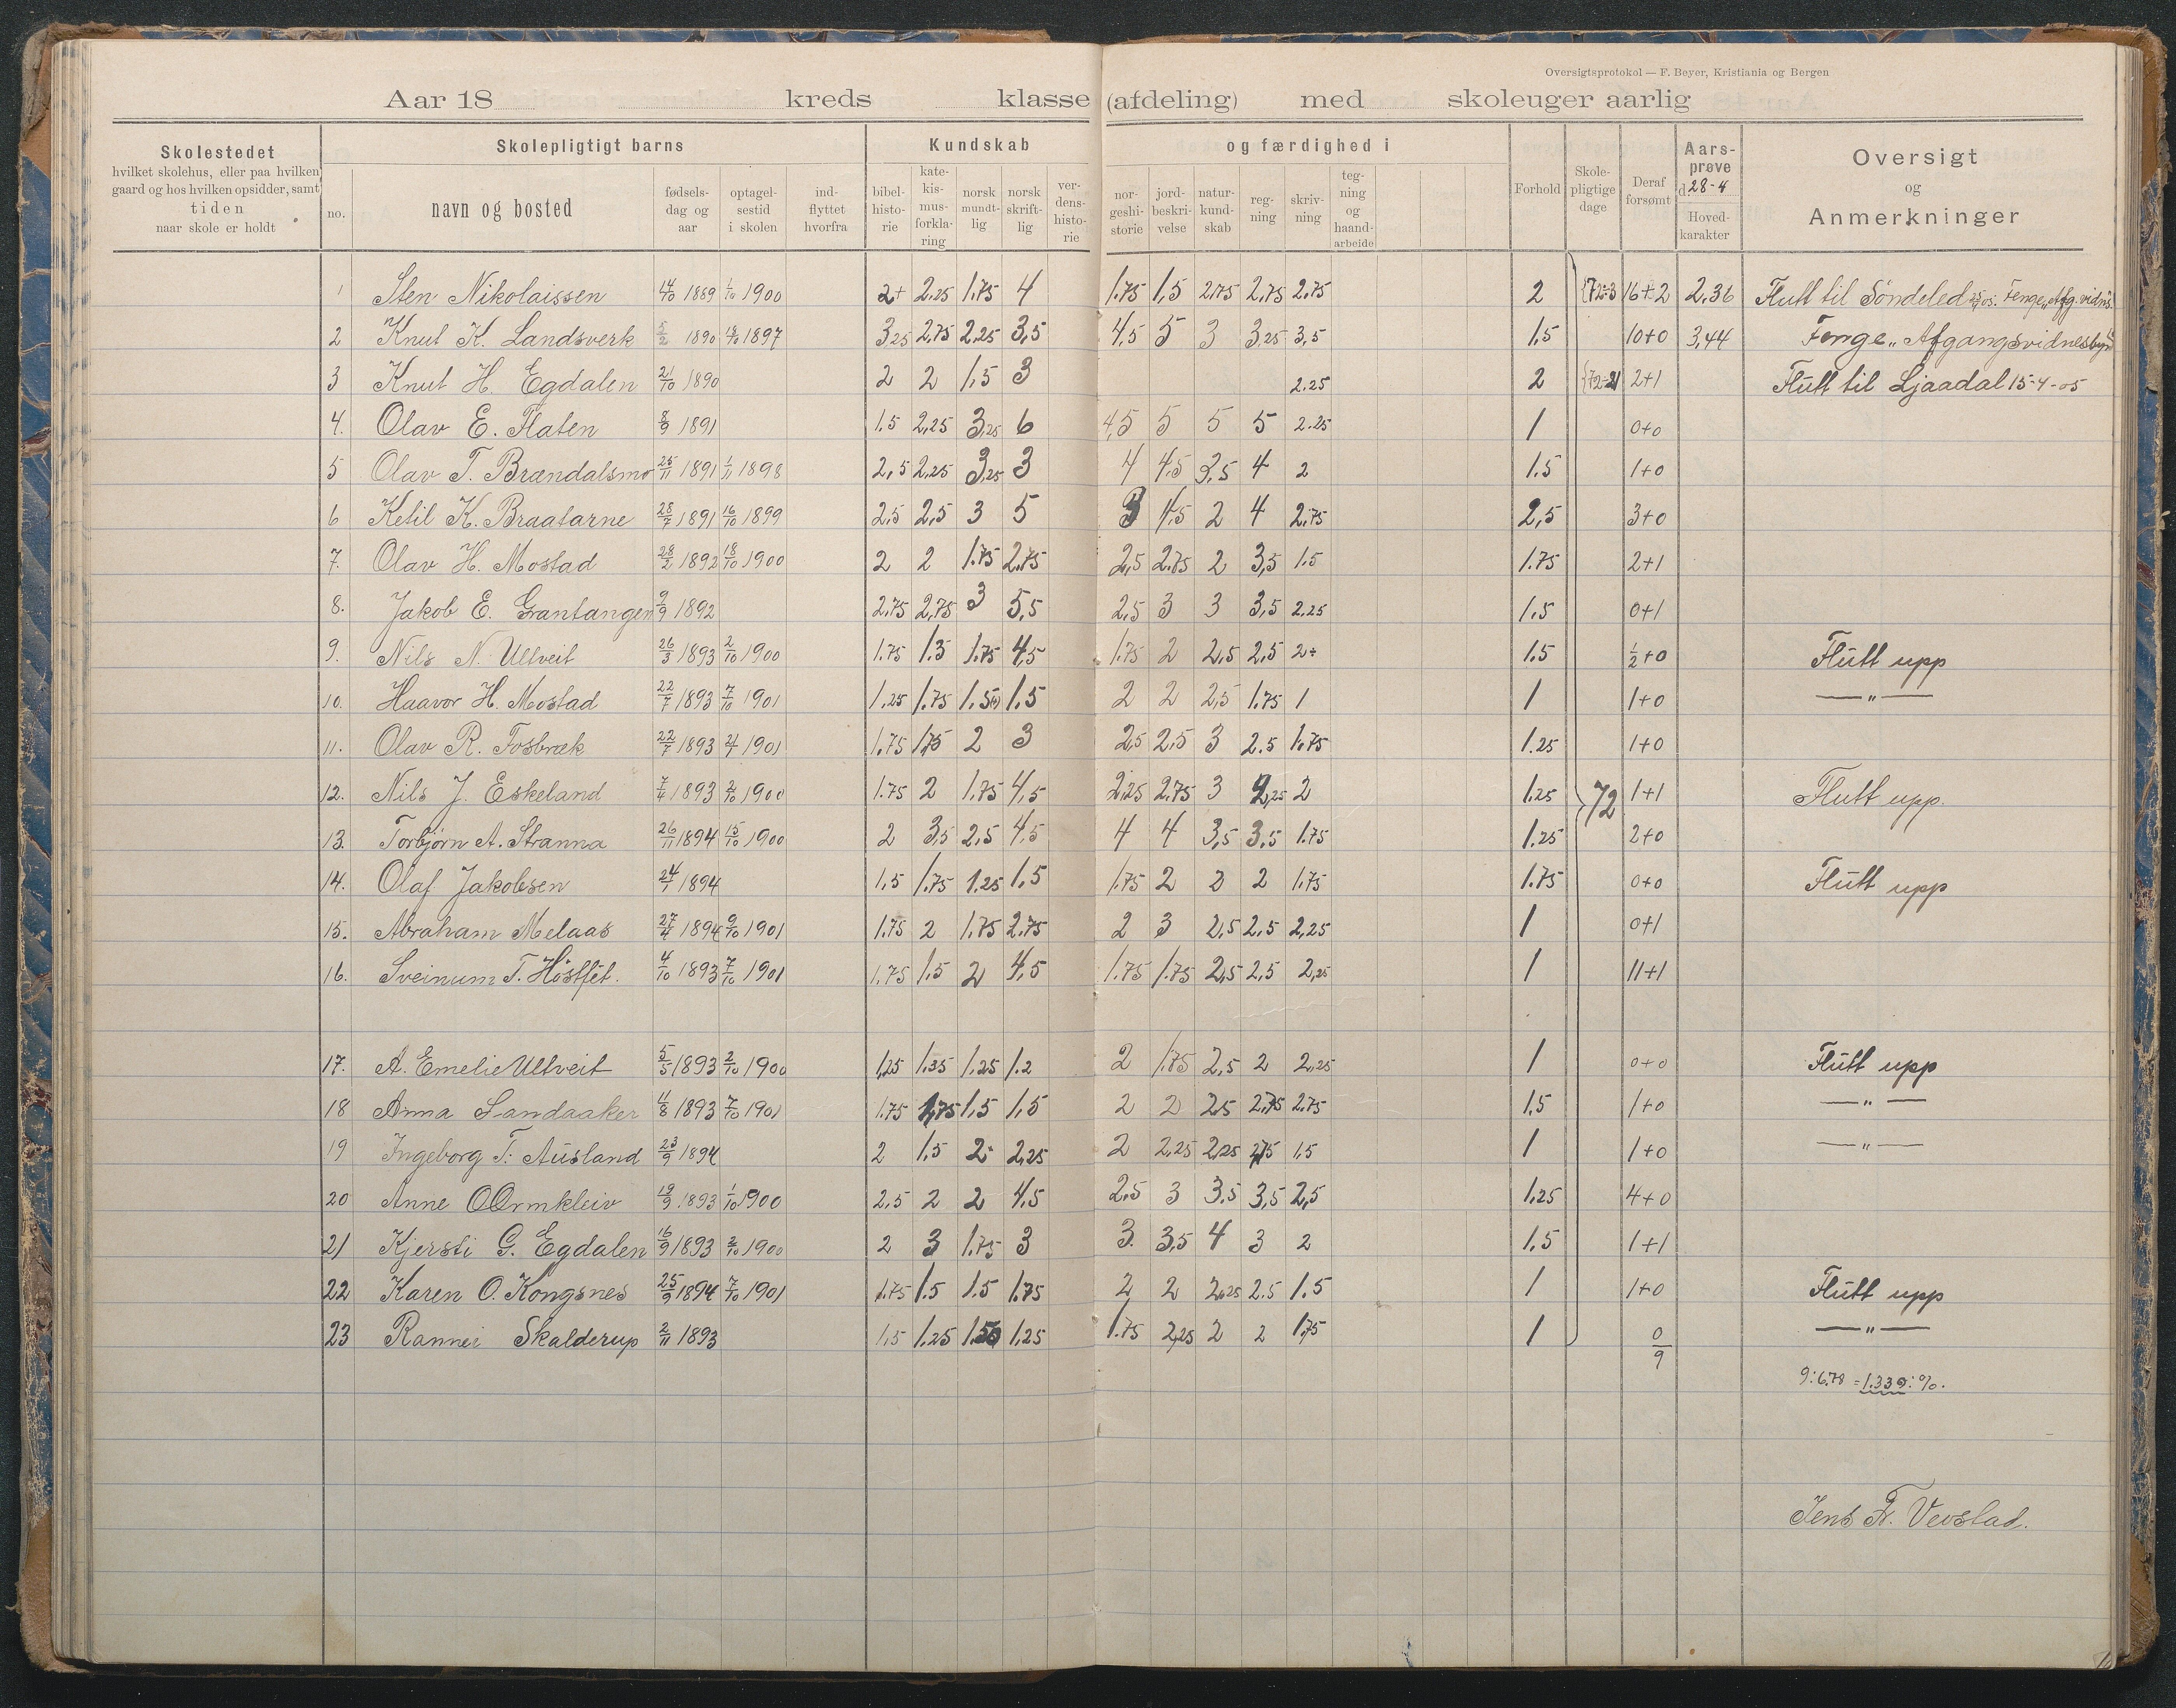 Oversigtsprotokol — F. Beyer, Kristiania og Bergen
Aar 18 kreds klasse (afdeling) med skoleuger aarlig
Skolestedet
hvilket skolehus, eller paa hvilken
gaard og hos hvilken opsidder, samt
tiden
naar skole er holdt
Skolepligtigt barns
no.
navn og bosted
fødsels-
dag og
aar
optagel-
sestid
i skolen
ind-
flyttet
hvorfra
Kundskab
bibel-
histo-
rie
kate-
kis-
mus-
forkla-
ring
norsk
mundt-
lig
norsk
skrift-
lig
ver-
dens-
histo-
rie
og færdighed i
nor-
geshi-
storie
jord-
beskri-
velse
natur-
kund-
skab
reg-
ning
skriv-
ning
teg-
ning
og
haand-
arbeide
Forhold
Skole-
pligtige
dage
Deraf
forsømt
Aars-
prøve
d. 28-4
Hoved-
karakter
Oversigt
og
Anmerkninger
1 Sten Nikolaissen 14/10 1889 1/10 1900 2+ 2.25 1.75 4 1.75 1,5 2.75 2,75 2.75 2 72÷3 16+2 2,36 Flutt til Söndeled Fenge „Afg. vidn.
2 Knut K. Landsverk 5/2 1890 18/10 1897 3,25 2,75 2,25 3,5 4,5 5 3 3,25 3,5 1,5 10+0 3,44 Fenge „Afgangsvidnesbyrd
3 Knut H. Egdalen 21/10 1890 2 2 1,5 3 2.25 2 72÷21 2+1 Flutt til Ljaadal 15-4-05
4. Olav E. Flaten 8/9 1891 1.5 2,25 3,25 6 4,5 5 5 5 2.25 1 0+0
5 Olav T. Brændalsmo 25/11 1891 1/11 1898 2,5 2,25 3,25 3 4 4,5 3,5 4 2 1.5 1+0
6 Ketil K. Braatarne 28/7 1891 16/10 1899 2,5 2,5 3 5 3 4,5 2 4 2,75 2,5 3+0
7. Olav H. Mostad 28/2 1892 18/10 1900 2 2 1.75 2.75 2,5 2.75 2 3,5 1.5 1.75 2+1
8. Jakob E. Grantangen 9/9 1892 2.75 2,75 3 5,5 2,5 3 3 3,5 2.25 1.5 0+1
9. Nils N. Ultveit 26/3 1893 2/10 1900 1.75 1.3 1.75 4,5 1.75 2 2,5 2,5 2÷ 1.5 1/2+0 Flutt upp
10. Haavor H. Mostad 22/7 1893 7/10 1901 1.25 1.75 1.5 1.5 2 2 2,5 1.75 1 1 1+0 —„—
11. Olav R. Fosbræk 22/7 1893 1901 1.75 1.75 2 3 2,5 2.5 3 2.5 1.75 1.25 1+0
12. Nils J. Eskeland 7/4 1893 2/10 1900 1.75 2 1.75 4,5 2,25 2.75 3 2,25 2 1.25 72 1+1 Flutt upp.
13. Torbjørn A. Stranna 26/11 1894 15/10 1900 2 3,5 2,5 4,5 4 4 3,5 3,5 1.75 1.25 2+0
14. Olaf Jakobsen 24/1 1894 1,5 1.75 1.25 1.5 1.75 2 2 2 1.75 1.75 0+0 Flutt upp
15. Abraham Melaas 27/4 1894 9/10 1901 1.75 2 1.75 2.75 2 3 2,5 2.5 2,25 1 0+1
16. Sveinum T. Höstfët. 4/10 1893 7/10 1901 1.75 1.5 2 4,5 1.75 1.75 2,5 2,5 2,25 1 11+1
17. A. Emelie Ultveit 5/5 1893 2/10 1900 1,25 1.35 1.25 1.2 2 1.75 2,5 2 2,25 1 0+0 Flutt upp
18 Anna Sandaaker 4/8 1893 7/10 1901 1.75 1,75 1,5 1,5 2 2 2,5 2.75 2.75 1.5 1+0 —„—
19 Ingeborg T. Ausland 23/9 1894 2 1,5 2 2,25 2 2,25 2,25 2,75 1.5 1 1+0 —„—
20 Anne O Ormkleiv 19/9 1893 1/10 1900 2.5 2 2 4.5 2,5 3 3.5 3,5 2,5 1.25 4+0
21 Kjersti G. Egdalen 16/9 1893 2/10 1900 2 3 1.75 3 3. 3,5 4 3 2 1.5 1+1
22 Karen O. Kongsnes 25/9 1894 7/10 1901 1.75 1.5 1.5 1.75 2 2 2,25 2.5 1.5 1 1+0 Flutt upp
23 Rannei Skalderup 2/11 1893 1,5 1.25 1.50 1,25 1.75 2,25 2 2 1.75 1 0/9 —„—
9:6.78 = 1.339:%.
Jens Fr. Vevstad.